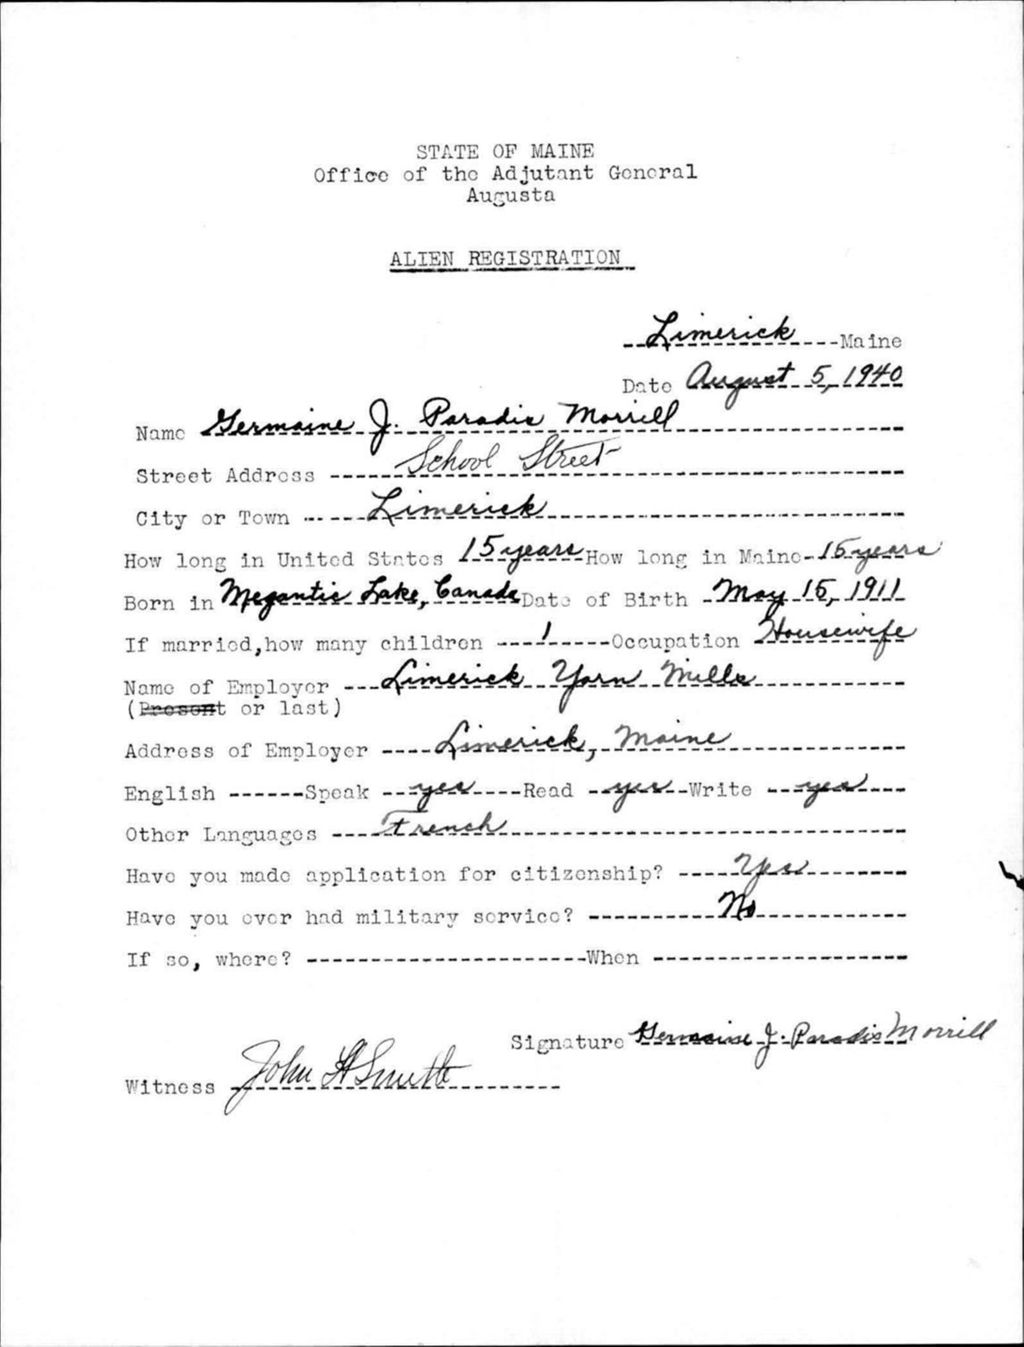 STATE OF MAINE
Office of the Adjutant General
Augusta
ALIEN REGISTRATION
Limerick Maine
Date August 5, 1940
Name Germaine J. Paradis Morrill
Street Address School Street
City or Town Limerick
How long in United States 15 years How long in Maine 15 years
Born in Megantic Lake, Canada Date of Birth May 15, 1911
If married, how many children 1 Occupation Housewife
Name of Employer Limerick Yarn Mills
(Present or last)
Address of Employer Limerick, Maine
English Speak yes Read yes Write yes
Other Languages French
Have you made application for citizenship? Yes
Have you ever had military service? No
If so, where? When
Signature Germaine J. Paradis Morrill
Witness John H Smith